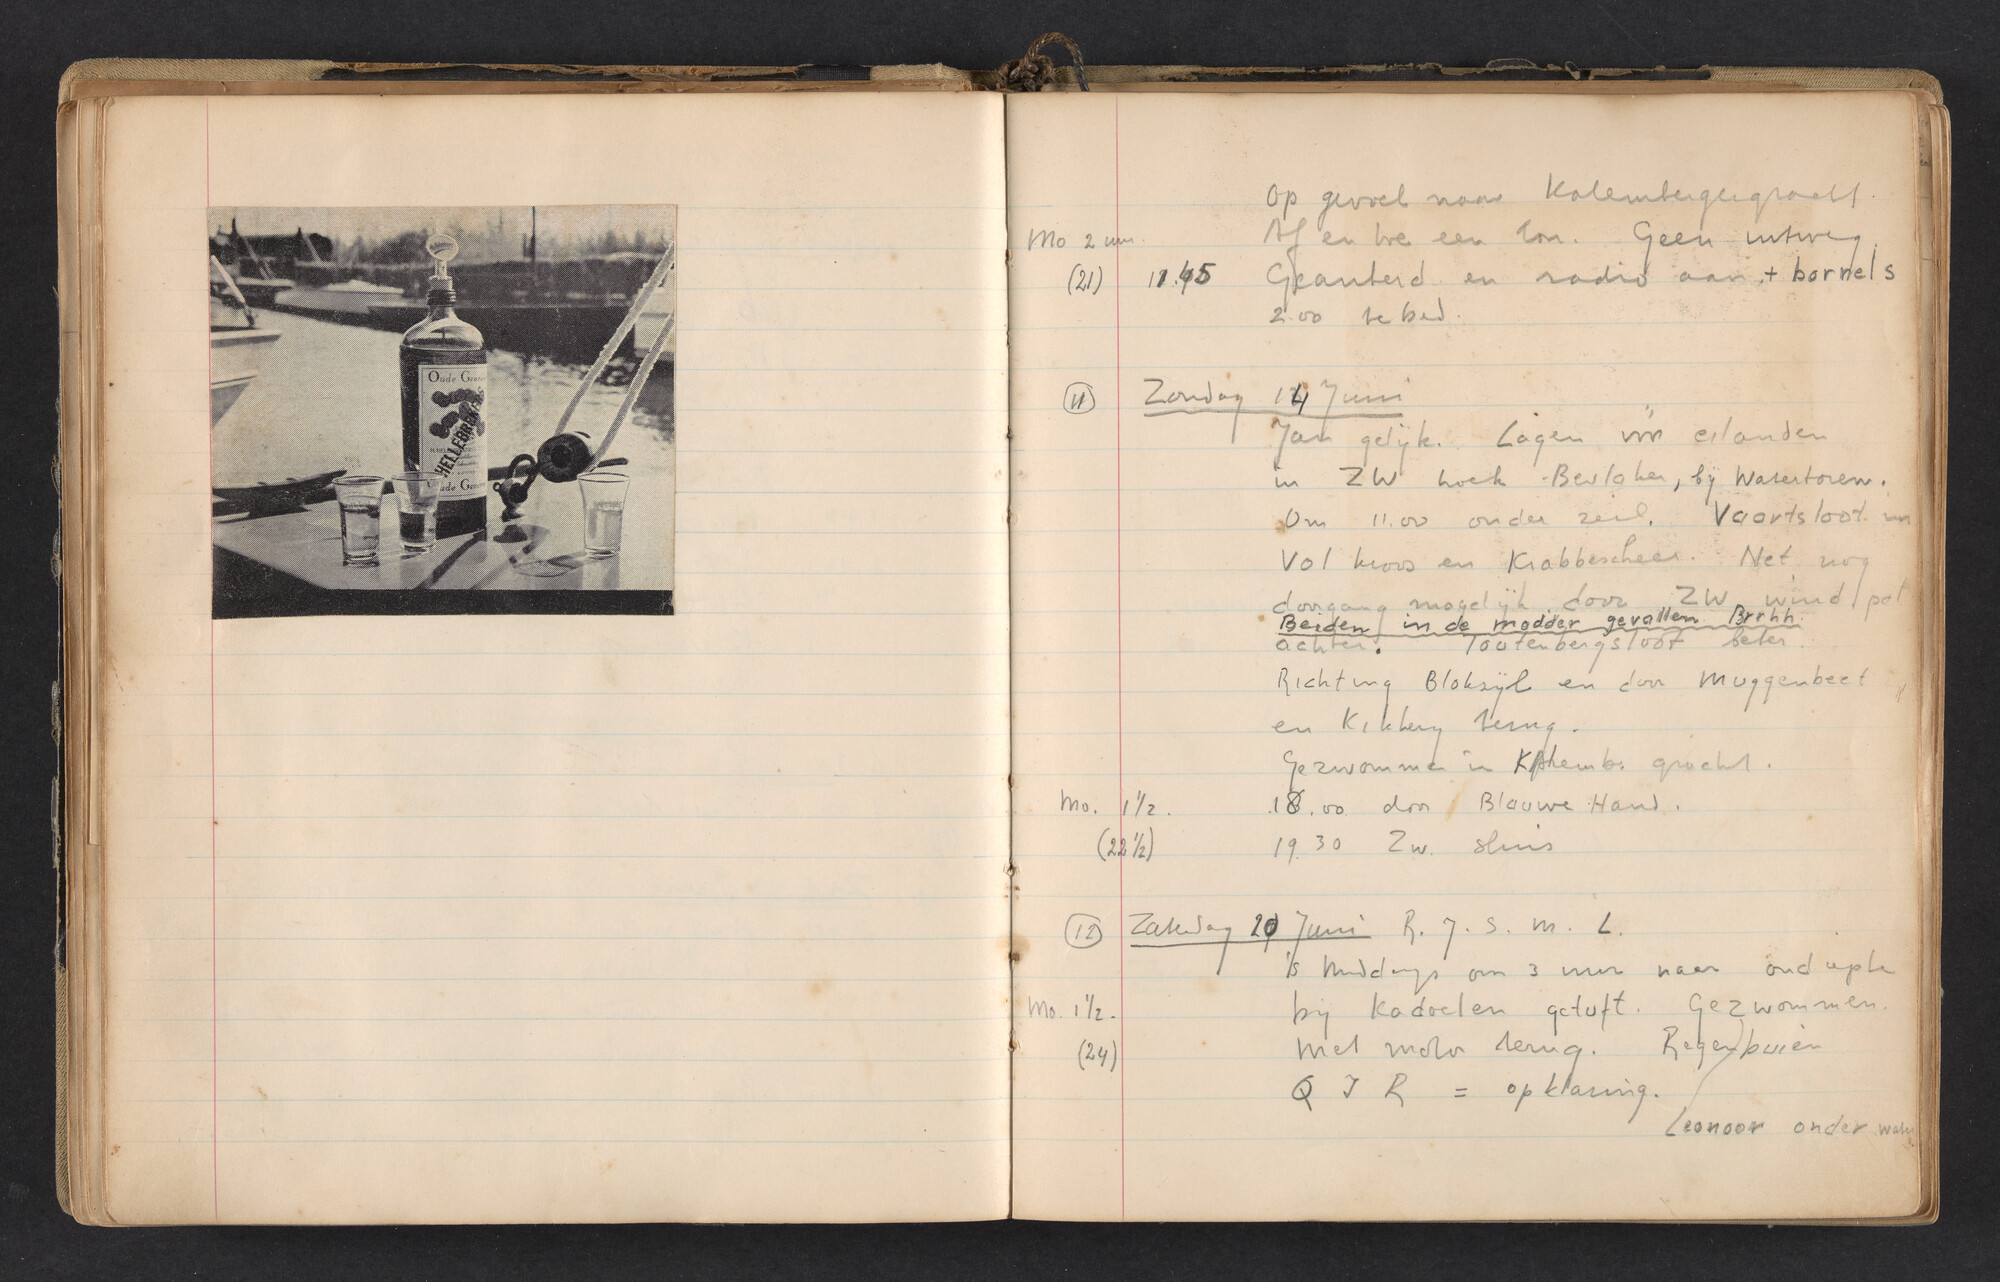 Oude Gene
HELLEBREKERS
Oude Gene
Op gevoel naar Kalembergergracht.
Mo 2 uur. Af en toe een ton. Geen uitweg.
(21) 11.45 Geankerd en radio aan + borrels
2.00 te bed.
(11) Zondag 14 Juni
Jan gelijk. Lagen vóór eilanden
in ZW hoek Beulaker, bij Watertoren.
Om 11.00 onder zeil. Vaartsloot
Vol kroos en Krabbescheer. Net nog
doorgang mogelijk door ZW wind pal
Beiden in de modder gevallen Brrhh.
achter. Toutenbergsloot beter.
Richting Blokzijl en door Muggenbeet
en Kikkery terug.
Gezwommen in Kalemb. gracht.
Mo. 1 1/2. 18.00 door Blauwe Hand.
(22 1/2) 19.30 Zw. sluis
(12) Zaterdag 20 Juni R. J. S. M. L.
's Middags om 3 uur naar
Mo. 1 1/2. bij Kadoelen getuft. Gezwommen.
(24) Met motor terug. Regenbuien
Q J R = opklaring.
Leonoor onder water